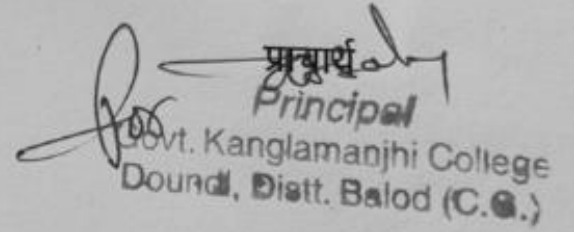 प्राचार्य
Principal
Govt. Kanglamanjhi College
Doundi, Distt. Balod (C.G.)